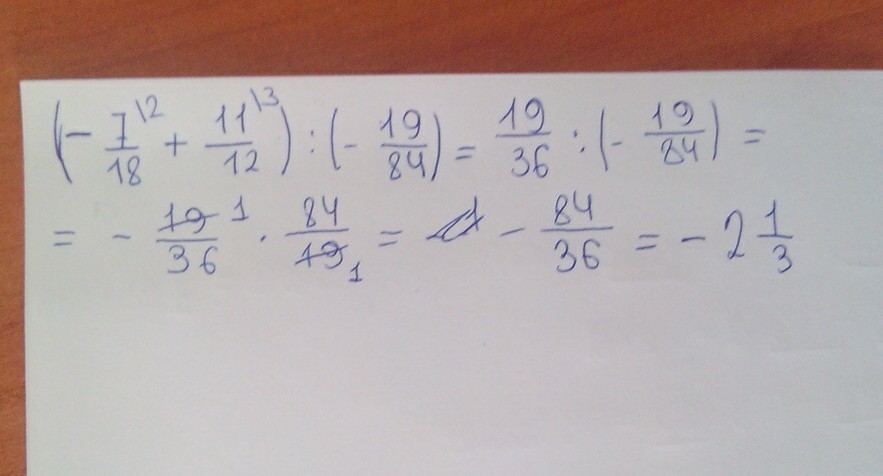 (- 7\2/18 + 11\3/12) : (- 19/84) = 19/36 : (- 19/84) =
= - 19 1/36 · 84/19 1 = - 84/36 = - 2 1/3